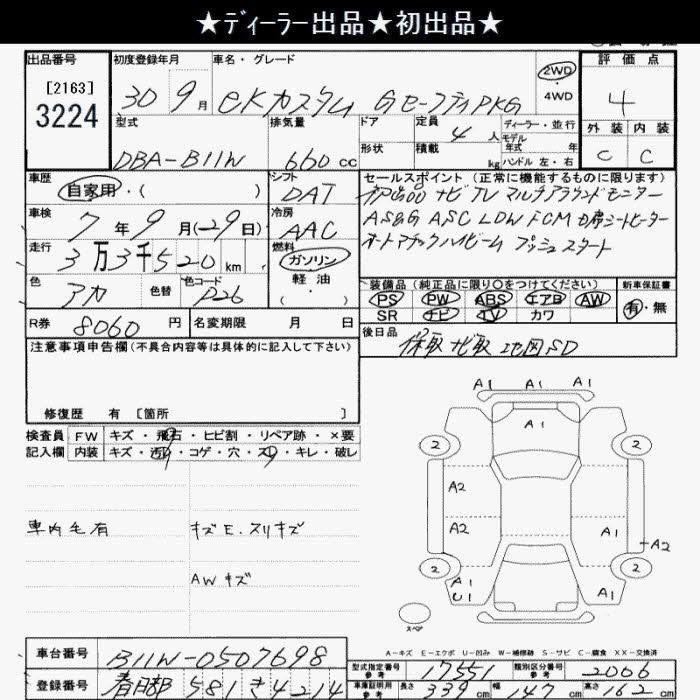 ★ディーラー出品★初出品★
出品番号 [2163] 3224
初度登録年月 30年9月
車名・グレード eKカスタム Gセーフティ PKG
2WD
4WD
評価点 4
外装 内装
C C
型式 DBA-B11W
排気量 660cc
ドア
形状
定員 4人
積載 kg
ディーラー・並行
モデル年式 年
ハンドル 左・右
車歴 自家用・( )
シフト DAT
車検 7年9月(-29日)
冷房 AAC
走行 3万3千520km
燃料 ガソリン
軽油
( )
色 アカ 色替
色コード P26
セールスポイント(正常に機能するものに限ります)
ナビ TV マルチアラウンドモニター
AS&G ASC LDW FCM D席シートヒーター
オートマチックハイビーム プッシュスタート
装備品(純正品に限り〇をつけてください)
PS PW ABS エアB AW
SR ナビ TV カワ
新車保証書
有・無
R券 8060円
名変期限 月 日
後日品 保取 ナビ取 地図SD
注意事項申告欄(不具合内容等は具体的に記入して下さい)
修復歴 有 [箇所 ]
検査員 FW キズ・飛石・ヒビ割・リペア跡・×要
記入欄 内装 キズ・汚れ・コゲ・穴・スレ・キレ・破レ
車内毛有
キズE.スリキズ
AWキズ
A1 A1 A1
A1
2 2
A2
A2 A1 A2
2 2
A1
U1 A1
スペア
A-キズ E-エクボ U-凹み W-補修跡 S-サビ C-腐食 XX-交換済
車台番号 B11W-0507698
登録番号 春日部 581 き 4214
型式指定番号 参考 17551
類別区分番号 参考 2066
車庫証明用 参考 長さ 339cm 幅 147cm 高さ 162cm